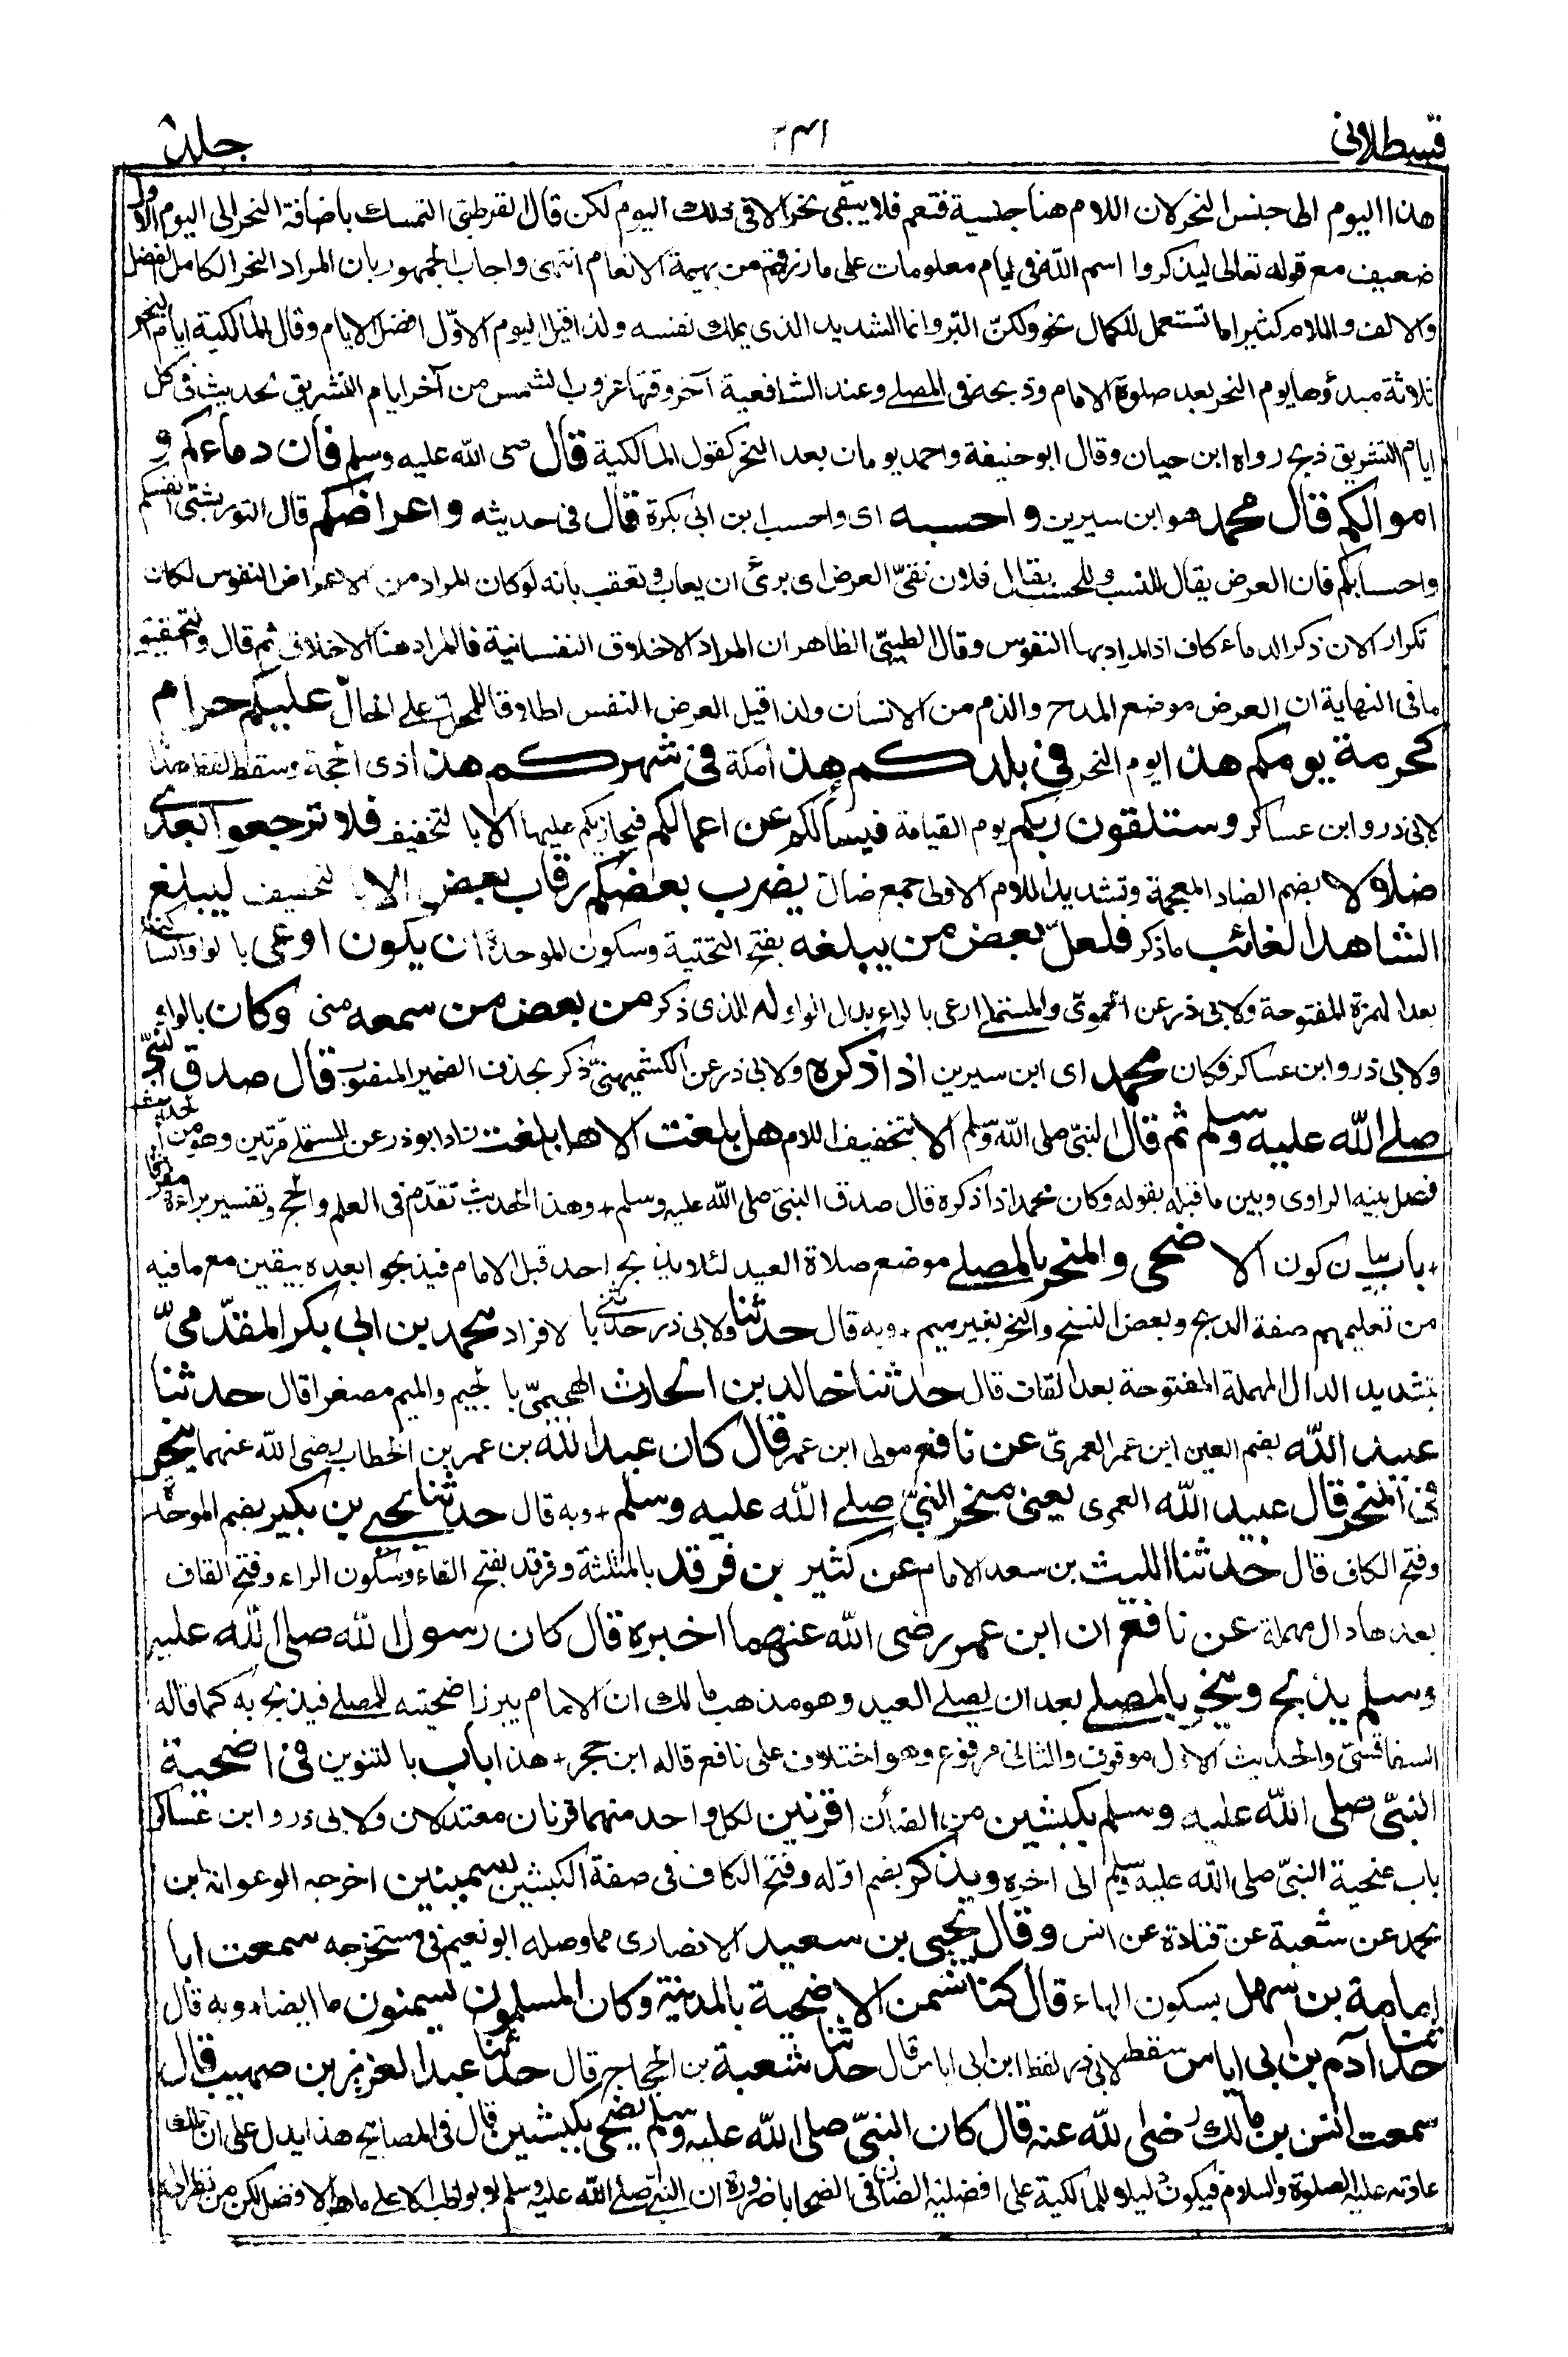 قسطلاني
جلد
هذا اليوم الى جنس النحر لان اللام هنا جنسية فتعم فلا يبقى نحر الا في ذلك اليوم لكن قال القرطبي التمسك باضافة النحر الى اليوم الاول
ضعيف مع قوله تعالى ليذكروا اسم الله في ايام معلومات على ما رزقهم من بهيمة الانعام انتهى واجاب الجمهور بان المراد النحر الكامل الفضل
والالف واللام كثيرا ما تستعمل للكمال نحو ولكن البر وانما الشديد الذى يملك نفسه ولذا قيل اليوم الاوّل افضل الايام وقال المالكية ايام النحر
ثلاثة مبدؤها يوم النحر بعد صلوة الامام وذبحه في المصلى وعند الشافعية آخر وقتها غروب الشمس من آخر ايام التشريق بحديث في كل
ايام التشريق ذبح رواه ابن حبان وقال ابو حنيفة واحمد يومان بعد النحر كقول المالكية قال صلى الله عليه وسلم فان دماءكم و
اموالكم قال محمد هو ابن سيرين واحسبه اى واحسب ابن ابي بكرة قال في حديثه واعراضكم قال التوربشتي انفسكم
واحسابكم فان العرض يقال للنفس وللحسب يقال فلان نقيّ العرض اى برئ ان يعاب وتعقب بانه لو كان المراد من الاعراض النفوس لكان
تكرارا لان ذكر الدماء كاف اذ المراد بها النفوس وقال الطيبيّ الظاهر ان المراد الاخلاق النفسانية فالمراد هنا الاخلاق ثم قال والتحقيق
ما في النهاية ان العرض موضع المدح والذم من الانسان ولذا قيل العرض النفس اطلاقا للمحل على الحالّ عليكم حرام
كحرمة يومكم هذا يوم النحر في بلدكم هذا مكة في شهركم هذا ذى الحجة وسقط لفظ هذا
لابي ذر وابن عساكر وستلقون ربكم يوم القيامة فيسألكم عن اعمالكم فيجازيكم عليها الا بالتخفيف فلا ترجعوا بعدى
ضلالا بضم الضاد المعجمة وتشديد اللام الاولى جمع ضال يضرب بعضكم رقاب بعض الا بالتخفيف ليبلغ
الشاهد الغائب ما ذكر فلعلّ بعض من يبلغه بفتح التحتية وسكون الموحدة ان يكون اوعى بالواو الساكنة
بعد الهمزة المفتوحة ولابي ذر عن الحموىّ والمستملى ارعى بالراء بدل الواو له للذى ذكر من بعض من سمعه منى وكان بالواو
ولابي ذر وابن عساكر فكان محمد اى ابن سيرين اذا ذكره ولابي ذر عن الكشميهنىّ ذكر بحذف الضمير المنصوب قال صدق النبيّ
صلى الله عليه وسلم ثم قال النبيّ صلى الله عليه وسلم الا بتخفيف اللام هل بلغت الا هل بلغت زاد ابو ذر عن المستملى مرّتين وهو من الحديث
فصل بينه الراوى وبين ما قبله بقوله وكان محمد اذا ذكره قال صدق النبيّ صلى الله عليه وسلم + وهذا الحديث تقدّم في العلم والحج وتفسير براءة
+ باب بيان كون الاضحى والمنحر بالمصلى موضع صلاة العيد لئلا يذبح احد قبل الامام فيذبحوا بعده بيقين مع ما فيه
من تعليمهم صفة الذبح وبعض النسخ والنحر بغير ميم + وبه قال حدثنا ولابي ذر حدّثنى بالافراد محمد بن ابي بكر المقدّمىّ
بتشديد الدال المهملة المفتوحة بعد القاف قال حدثنا خالد بن الحارث الهجيمىّ بالجيم والميم مصغرا قال حدثنا
عبيد الله بضم العين ابن عمر العمرىّ عن نافع مولى ابن عمر قال كان عبد الله بن عمر بن الخطاب رضى الله عنهما ينحر
في المنحر قال عبيد الله العمرى يعنى منحر النبيّ صلى الله عليه وسلم + وبه قال حدثنا يحيى بن بكير بضم الموحدة
وفتح الكاف قال حدثنا الليث بن سعد الامام عن كثير بن فرقد بالمثلثة وفرقد بفتح الفاء وسكون الراء وفتح القاف
بعدها دال مهملة عن نافع ان ابن عمر رضى الله عنهما اخبره قال كان رسول الله صلى الله عليه
وسلم يذبح وينحر بالمصلى بعد ان يصلى العيد وهو مذهب مالك ان الامام يبرز اضحيته للمصلى فيذبح به كما قاله
السفاقسىّ والحديث الاوّل موقوف والثاني مرفوع وهو اختلاف على نافع قاله ابن حجر + هذا باب بالتنوين في اضحية
النبيّ صلى الله عليه وسلم بكبشين من الضأن اقرنين لكل واحد منهما قرنان معتدلان ولابي ذر وابن عساكر
باب ضحية النبيّ صلى الله عليه وسلم الى اخره ويذكر بضم اوّله وفتح الكاف في صفة الكبشين سمينين اخرجه ابو عوانة ابن
محمد عن شعبة عن قتادة عن انس وقال يحيى بن سعيد الانصارى مما وصله ابو نعيم في مستخرجه سمعت ابا
امامة بن سهل بسكون الهاء قال كنا نسمن الاضحية بالمدينة وكان المسلمون يسمنون ما ايضا + وبه قال
حدثنا آدم بن ابي اياس سقط لابي ذر لفظ ابن ابي اياس قال حدثنا شعبة بن الحجاج قال حدثنا عبد العزيز بن صهيب قال
سمعت انس بن مالك رضى الله عنه قال كان النبيّ صلى الله عليه وسلم يضحى بكبشين قال في المصابيح هذا يدل على ان ذلك
عادته عليه الصلوة والسلام فيكون دليلا للمالكية على افضلية الضأن في الضحايا ضرورة ان النبيّ صلى الله عليه وسلم لا يواظب الا على ما هو الافضل لكن من نظر الى